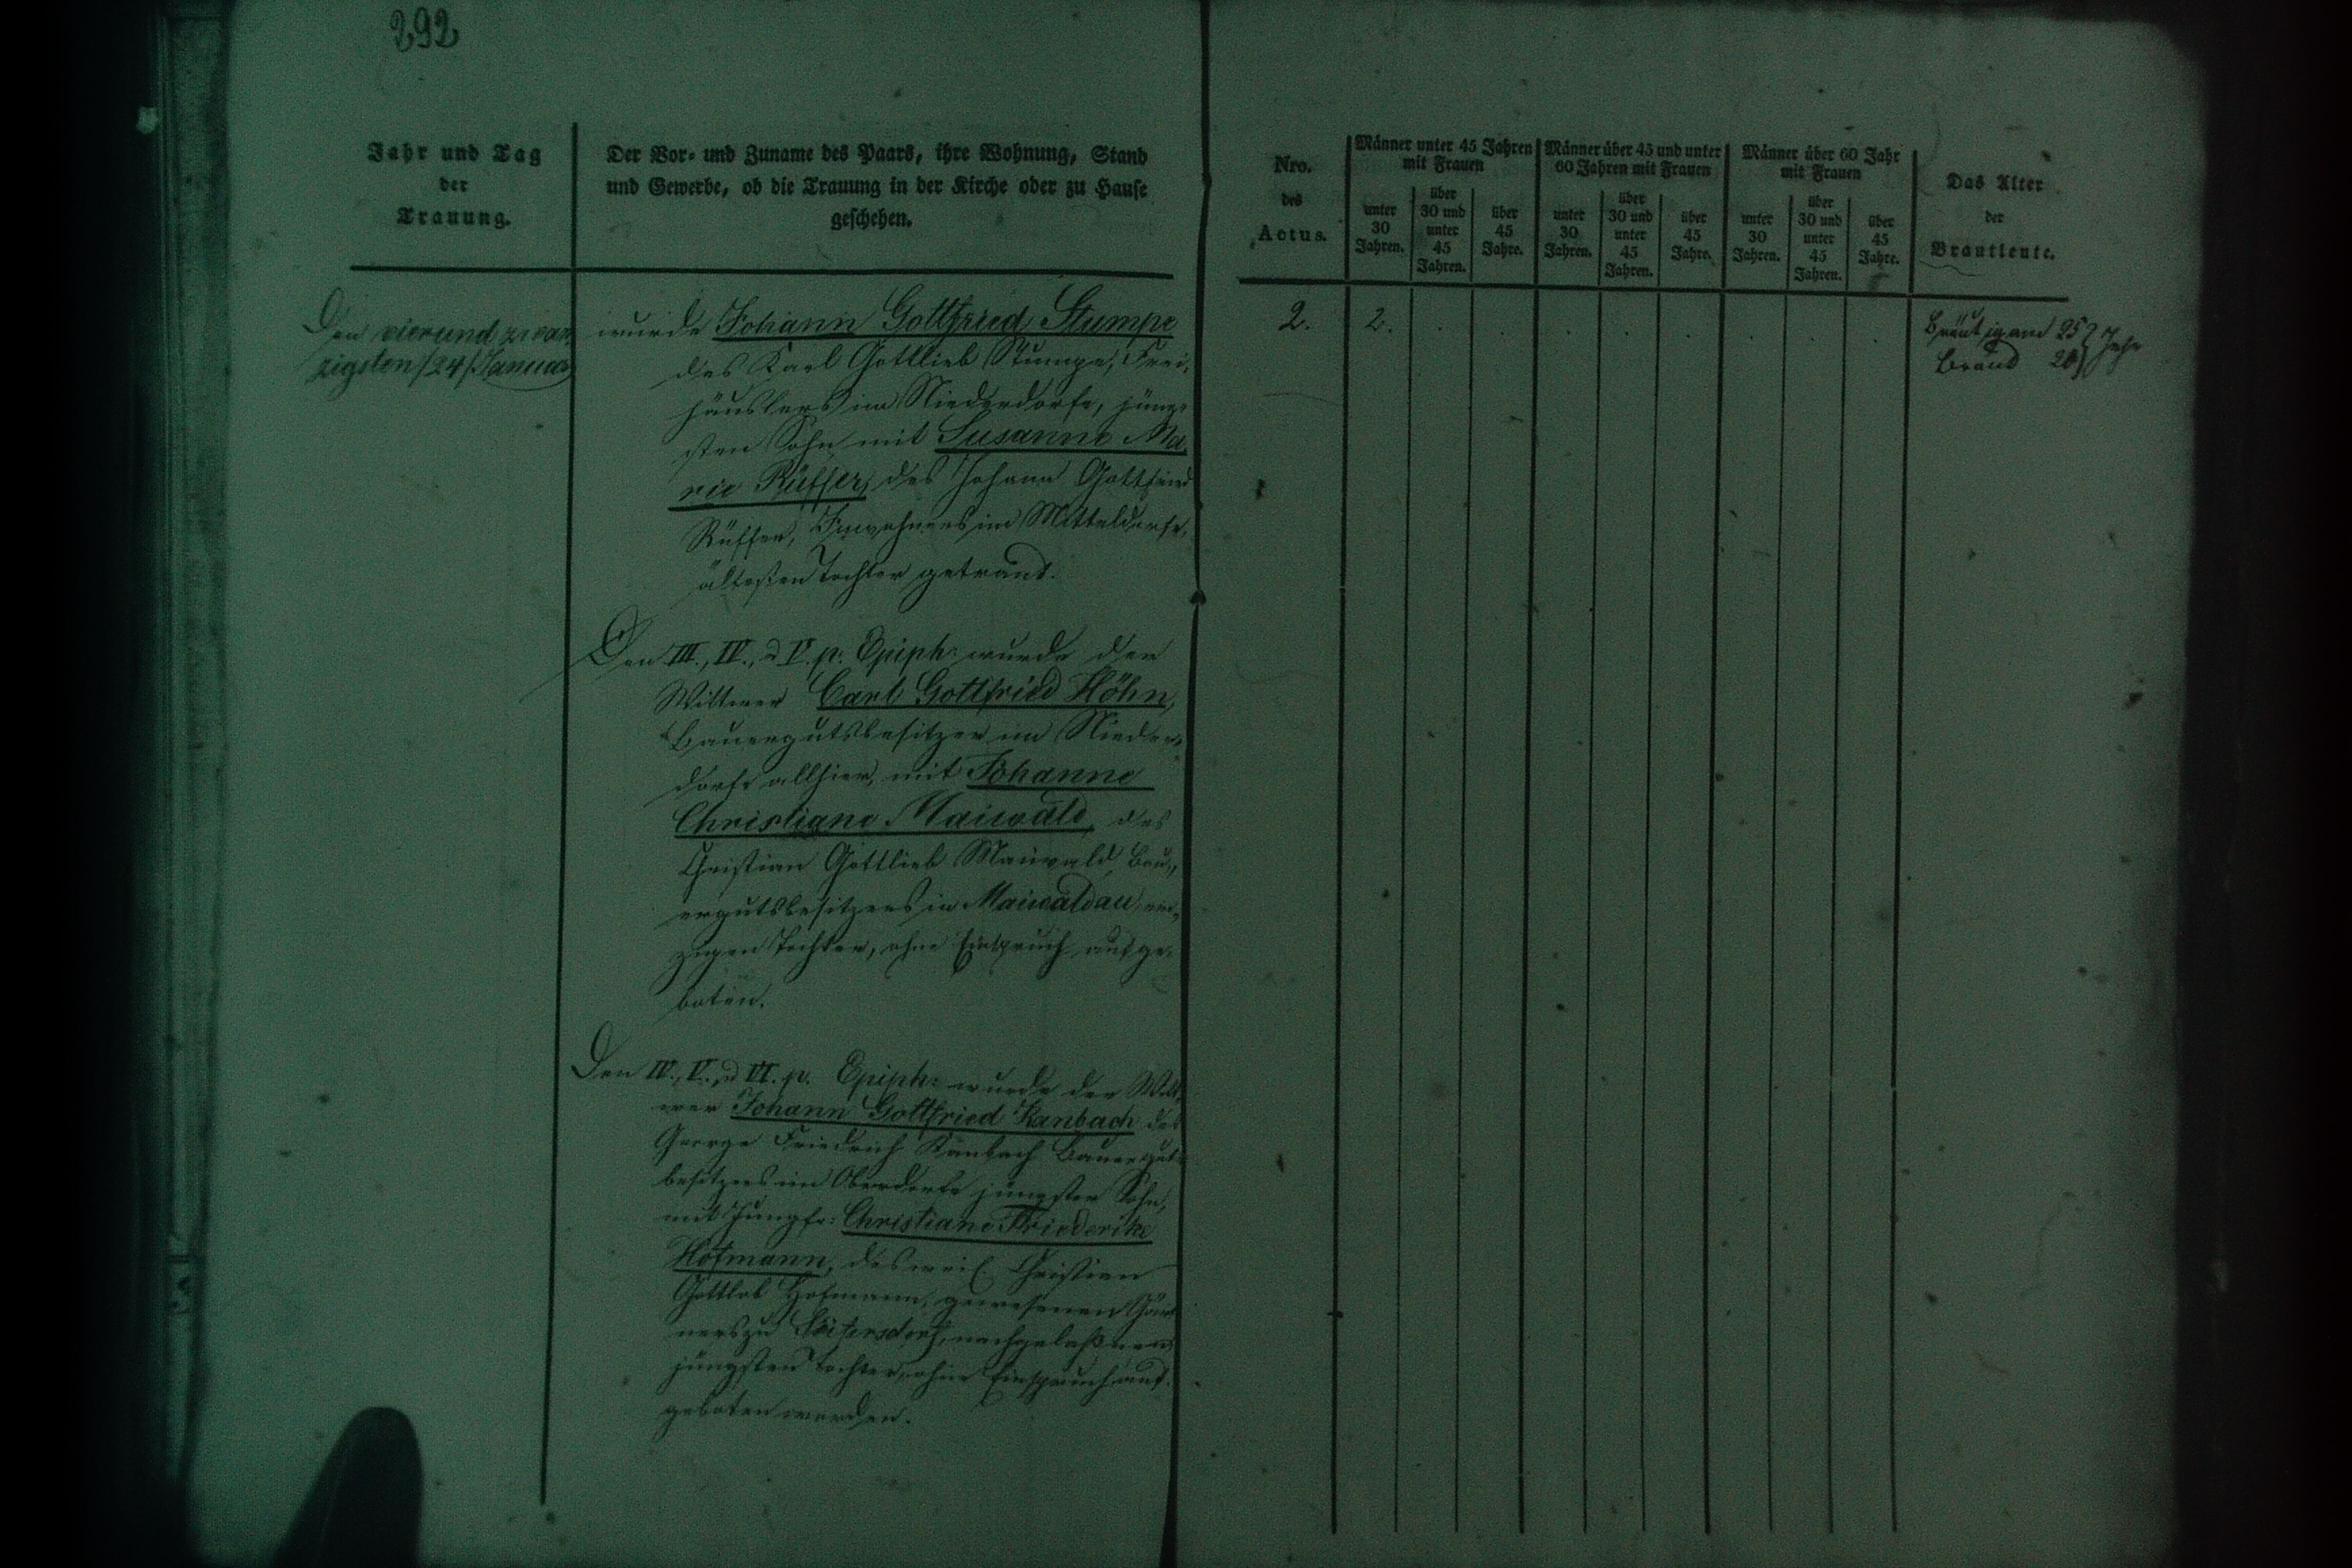 292
Jahr und Tag
der
Trauung.
Der Vor- und Zuname des Paars, ihre Wohnung, Stand
und Gewerbe, ob die Trauung in der Kirche oder zu Hause
geschehen.
Nro.
des
Actus.
Männer unter 45 Jahren
mit Frauen
unter
30
Jahren.
über
30 und
unter
45
Jahren.
über
45
Jahre.
Männer über 45 und unter
60 Jahren mit Frauen
unter
30
Jahren.
über
30 und
unter
45
Jahren.
über
45
Jahre.
Männer über 60 Jahr
mit Frauen
unter
30
Jahren.
über
30 und
unter
45
Jahren.
über
45
Jahre.
Das Alter
der
Brautleute.
Den vierundzwan
zigsten /24/ Januar
wurde Johann Gottfried Stumpe
des Karl Gottlieb Stumpe, Frei,
häuslers im Niederdorfe, jüng-
sten Sohn mit Susanne Ma,
rie Rüffer, des Johann Gottfried
Rüffer, Inwohners im Mitteldorfe,
ältesten Tochter getraut.
2.
2.
Bräutigam 25
Braut
Jahr
Den III., IV., u V. p. Epiph: wurde der
Wittwer Carl Gottfried Höhn,
Bauergutsbesitzer im Nieder,
dorfe allhier, mit Johanne
Christiane Maiwald, des
Christian Gottlieb Maiwald, Bau,,
ergutsbesitzers in Maiwaldau, ein,
zigen Tochter, ohne Einspruch aufge,
boten.
Den IV., V., u VI. p. Epiph: wurde der Witt,
wer Johann Gottfried Kanbach des
George Friedrich Kanbach Bauerguts
besitzers im Oberdorfe jüngster Sohn,
mit Jungfr: Christiane Friederike
Hofmann, des weil. Christian
Gottlob Hofmann, gewesenen Gärt
ners zu nachgelaßnen
jüngsten Tochter, ohne Einspruch auf,
geboten worden.